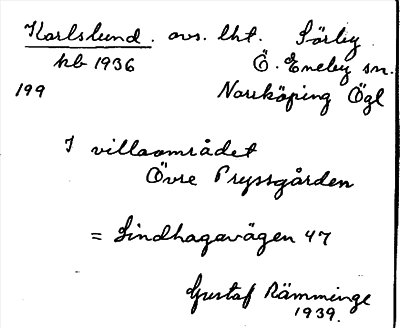 Karlslund. avs. lht. Sörby
kb 1936 Ö. Eneby sn.
199 Norrköping Ögl
I villaområdet
Övre Pryssgården
= Lindhagavägen 47
Gustaf Rämminge
1939.